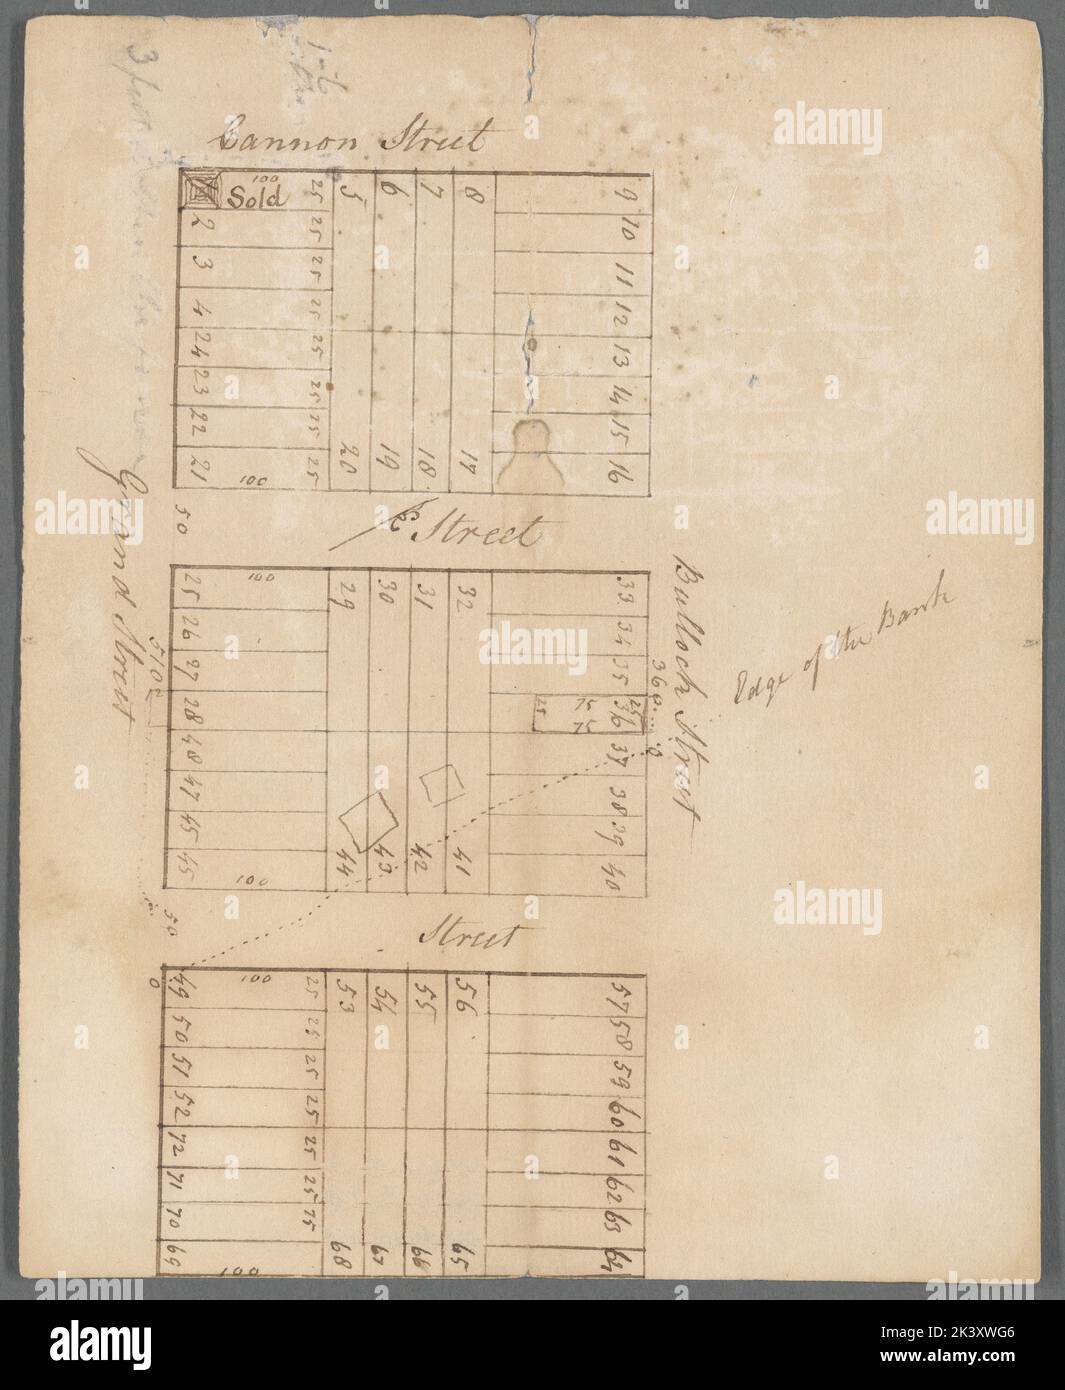 1-6
Cannon Street
100
Sold
1 2 3 4 24 23 22 21
25 25 25 25 25 25 25 25
5 6 7 8
20 19 18 17
9 10 11 12 13 14 15 16
100
50
Street
Grand Street
510
Bulloch Street
360
Edge of the Bank
100
25 26 27 28 48 47 45 45
29 30 31 32
44 43 42 41
33 34 35 36 37 38 39 40
25 75 25
75
100
50
Street
100
49 50 51 52 72 71 70 69
25 25 25 25 25 25 75
53 54 55 56
68 67 66 65
57 58 59 60 61 62 63 64
100
alamy
Image ID: 2K3XWG6
www.alamy.com